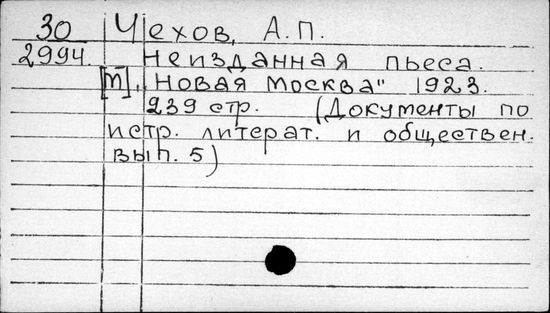 30 Чехов, А.П.
2994. Неизданная пьеса.
[m], „Новая Москва" 1923.
239 стр. (Документы по
истр. литерат. и обществен.
вып. 5)